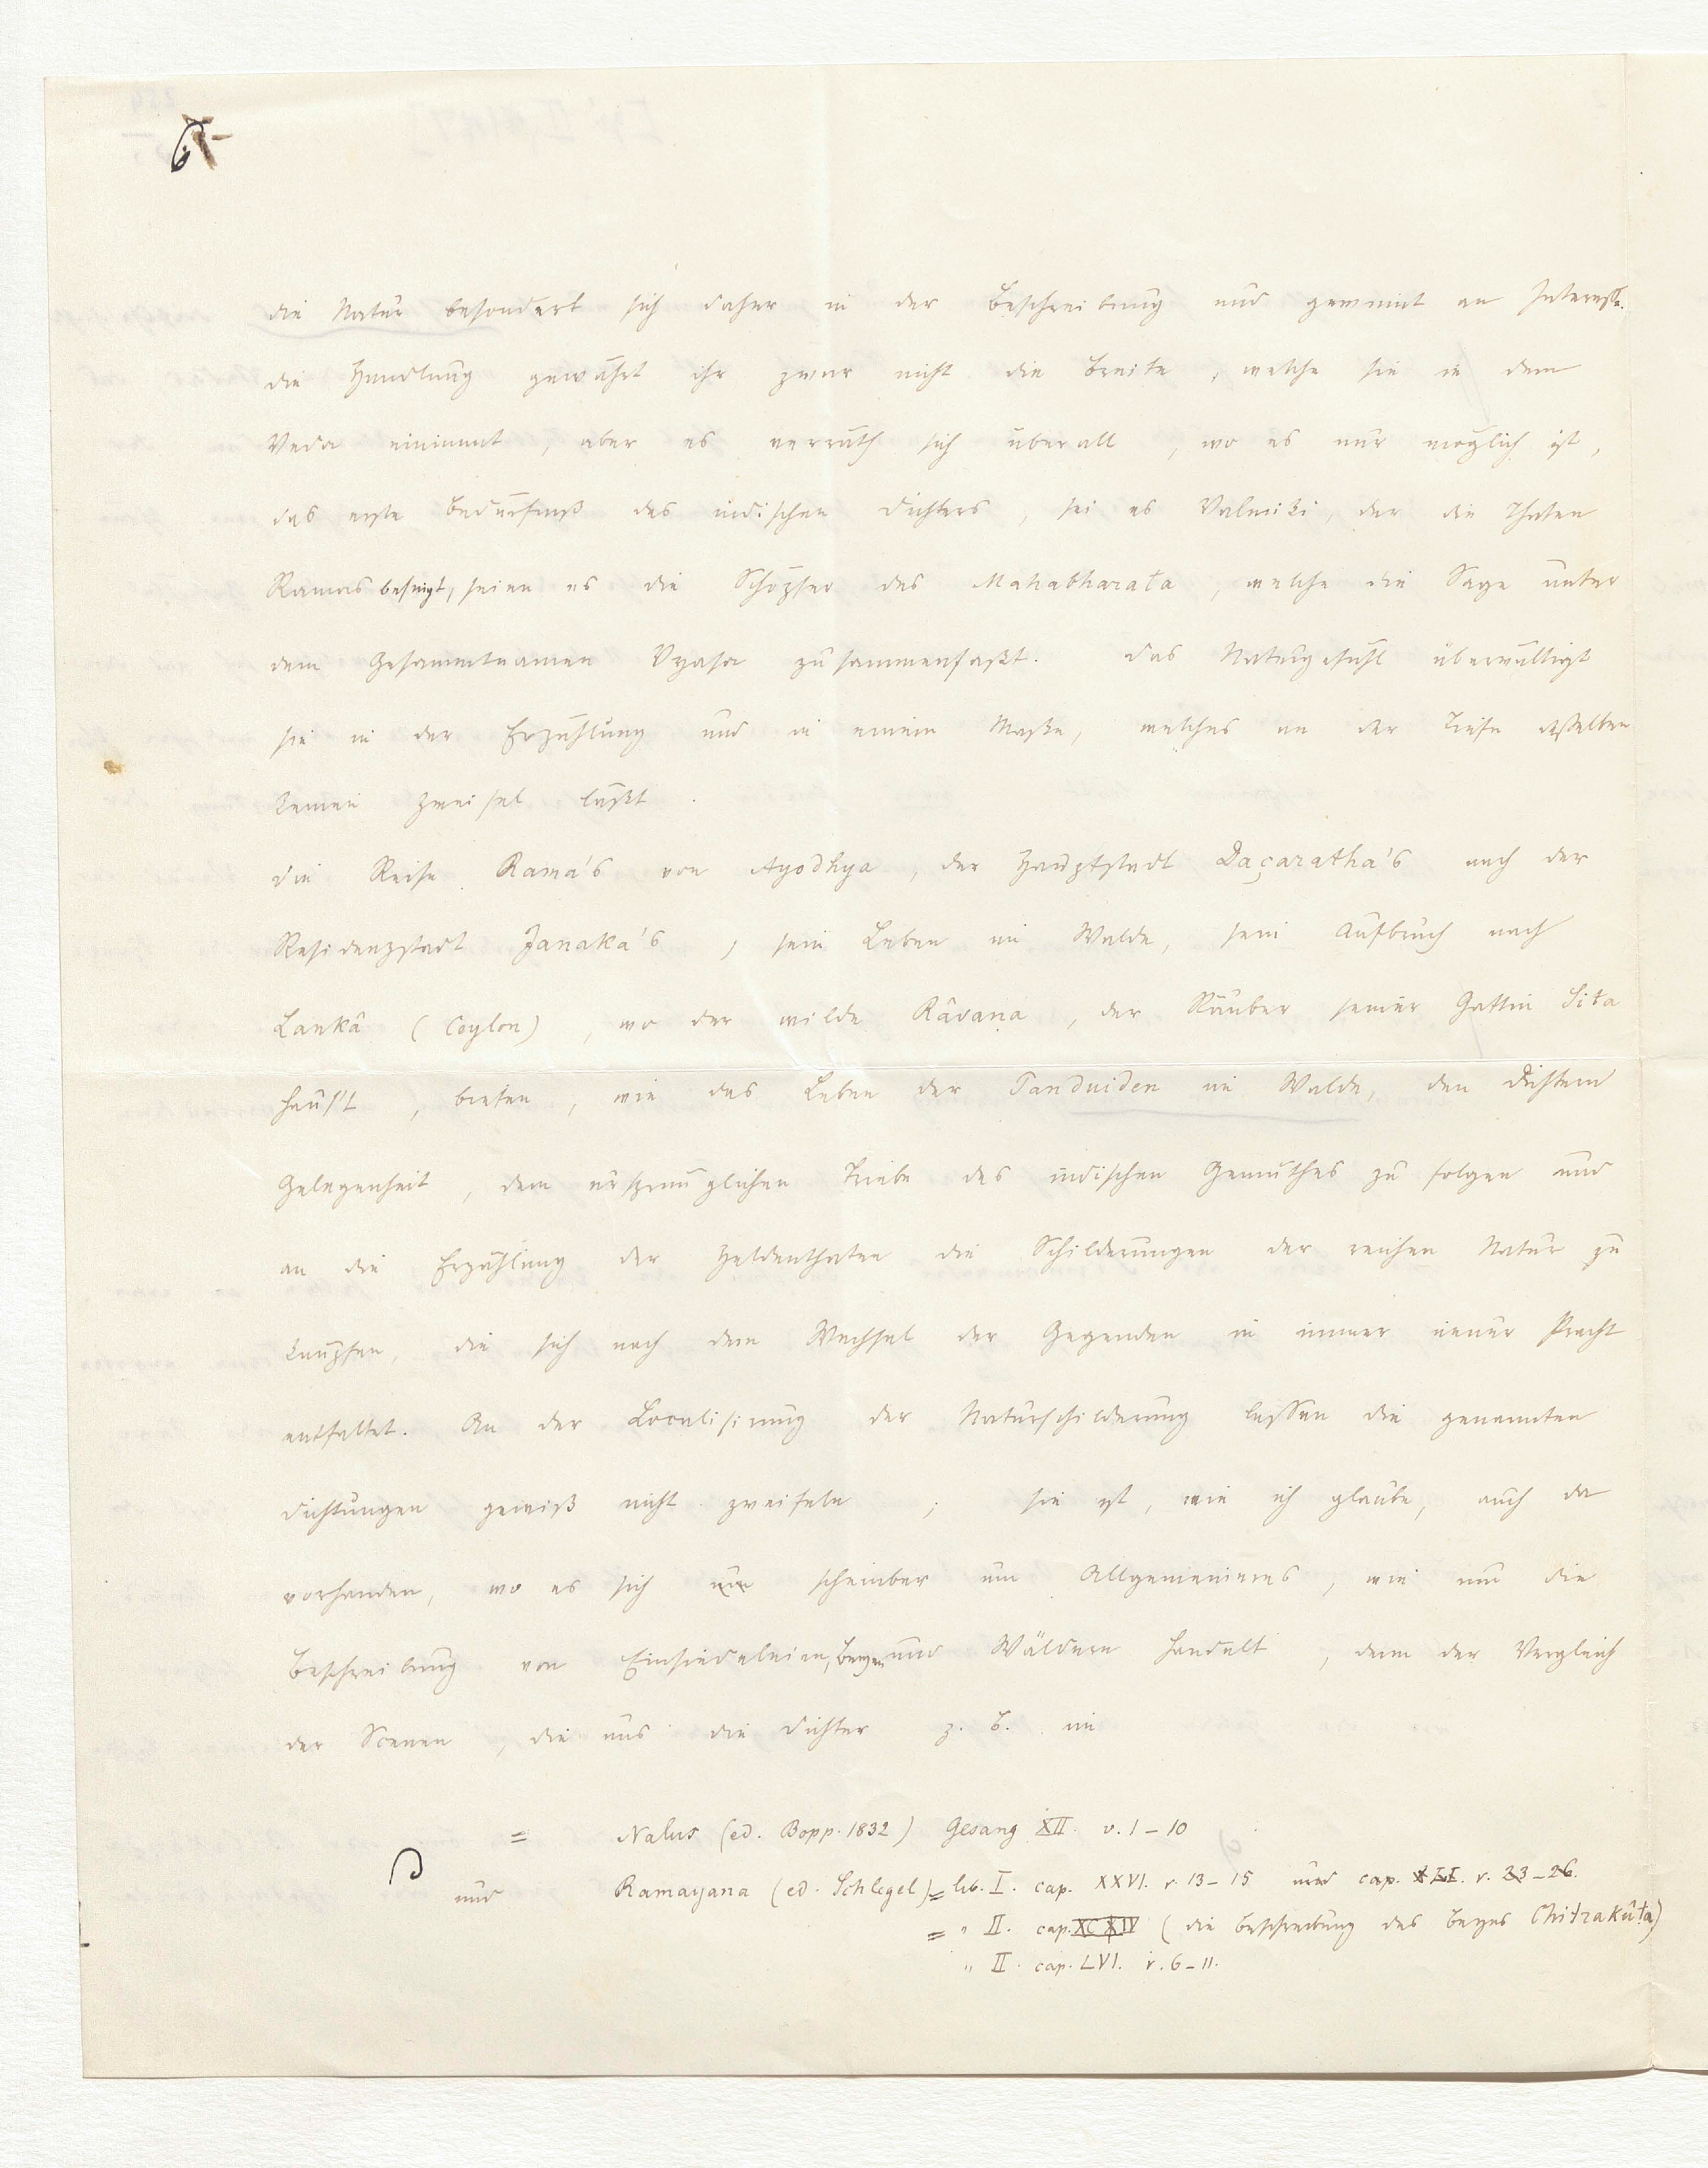 6
die Natur besondert sich daher in der Beschreibung und gewinnt an Interesse.
die Handlung gewährt ihr zwar nicht die Breite, welche sie in dem
Veda einnimmt, aber es verräth sich überall, wo es nur möglich ist,
das erste Bedürfniß des indischen Dichters, sei es Valmiki, der die Thaten
Ramas besingt, seien es die Schöpfer des Mahabharata, welche die Sage unter
dem Gesammtnamen Vyasa zusammenfaßt. Das Naturgefühl überwältigt
sie in der Erzählung und in einem Maße, welches an der Tiefe desselben
keinen Zweifel läßt.
die Reise Rama's von Ayodhya, der Hauptstadt Daçaratha's nach der
Residenzstadt Janaka's, sein Leben im Walde, sein Aufbruch nach
Lankâ (Ceylon), wo der wilde Râvaṇa, der Räuber seiner Gattin Sita
haus't, bieten, wie das Leben der Panduiden im Walde, den Dichtern
Gelegenheit, dem ursprünglichen Triebe des indischen Gemüthes zu folgen und
an die Erzählung der Heldenthaten die Schilderungen der reichen Natur zu
knüpfen, die sich nach dem Wechsel der Gegenden in immer neuer Pracht
entfaltet. An der Localisirung der Naturschilderung lassen die genannten
Dichtungen gewiß nicht zweifeln; sie ist, wie ich glaube, auch da
vorhanden, wo es sich um scheinbar um Allgemeineres, wie um die
Beschreibung von Einsiedeleien, Bergen und Wäldern handelt, denn der Vergleich
der Scenen, die uns die Dichter z. B. im
= Nalus (ed. Bopp. 1832) Gesang XII. v. 1-10
und Ramayana (ed. Schlegel) = lib. I. cap. XXVI. v. 13-15 und cap. v. 23-26.
= " II. cap. XCXIV (die Beschreibung des Berges Chitrakûta)
" II. cap. LVI. v. 6-11.